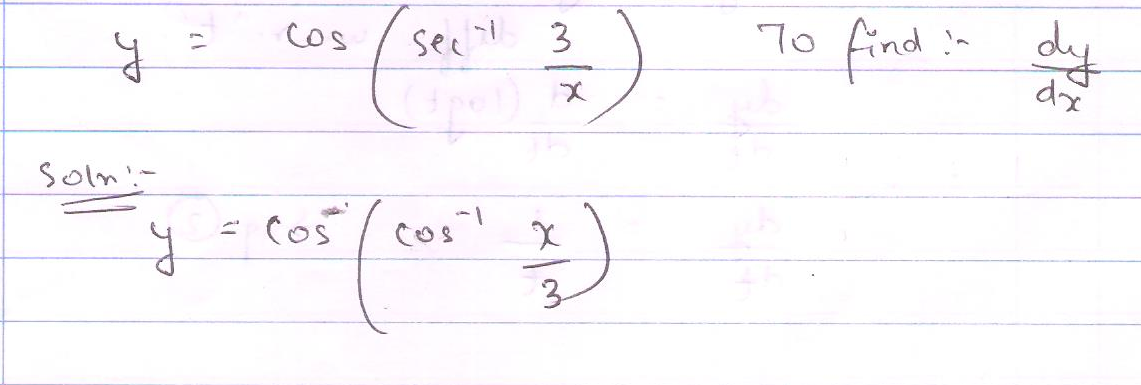 y = cos (sec⁻¹ 3/x) To find :- dy/dx
Soln :-
y = cos (cos⁻¹ x/3)